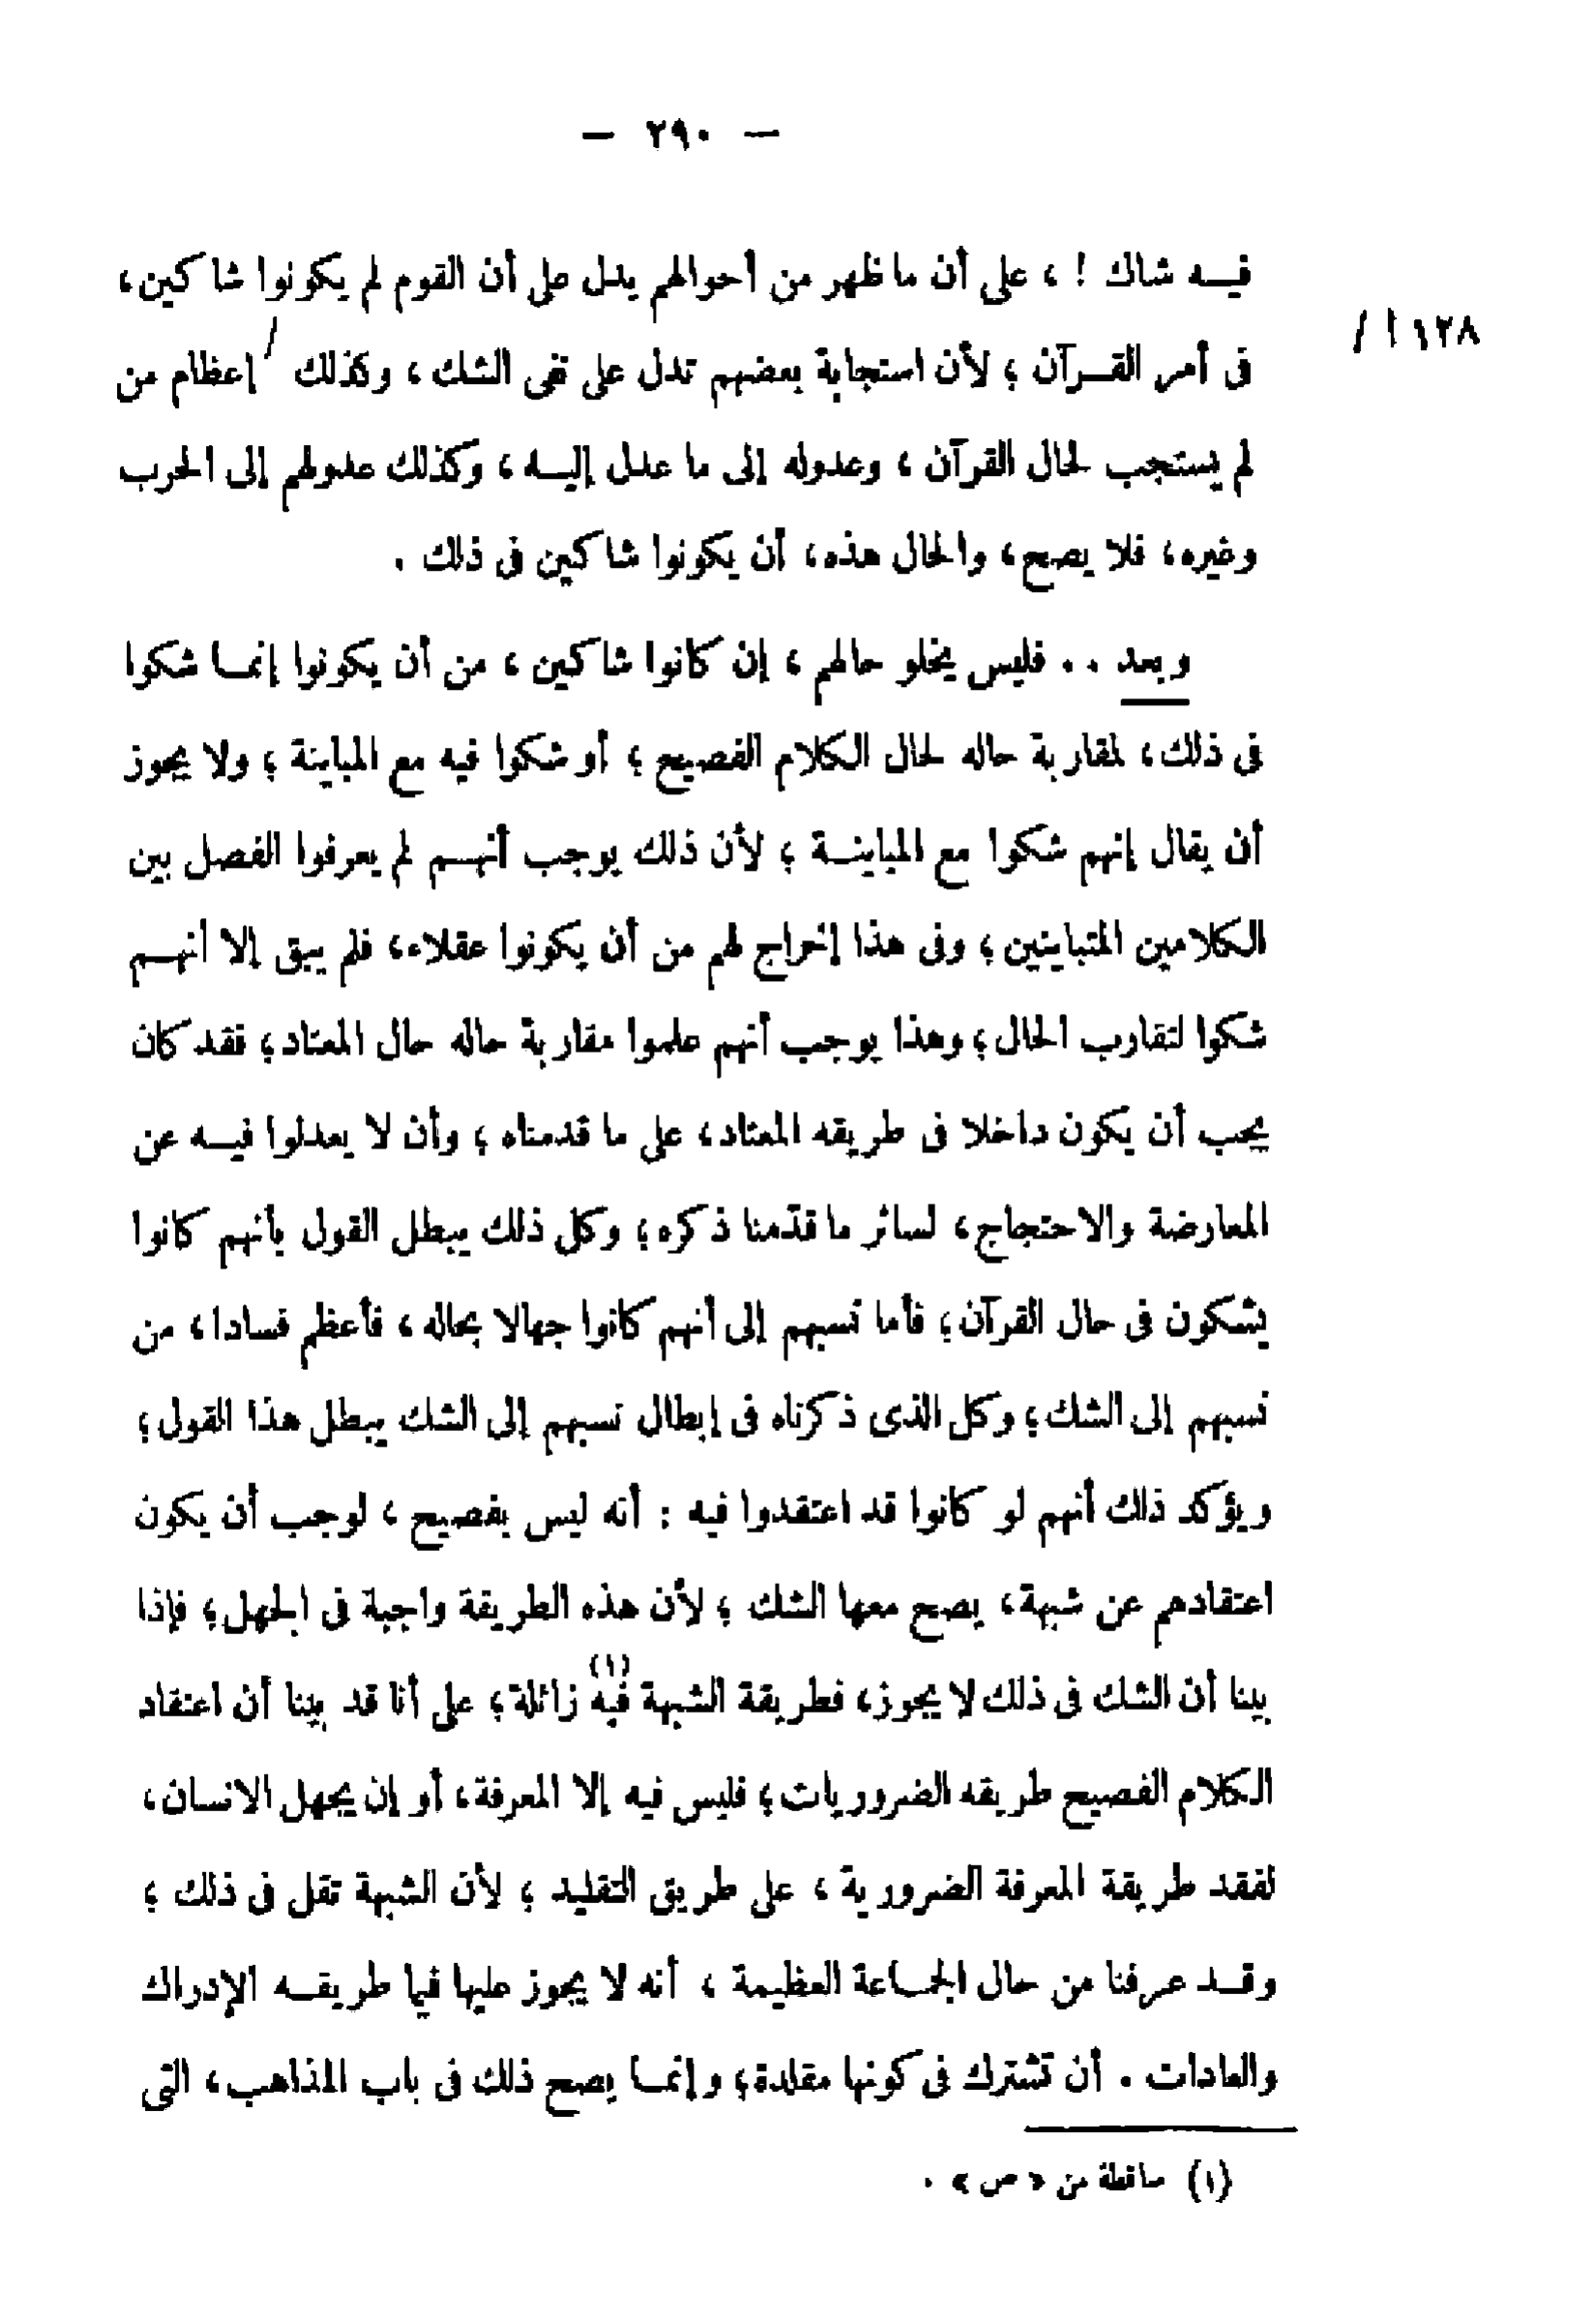 — ٢٩٠ —
فيه شاك ! ، على أن ما ظهر من أحوالهم يدل على أن القوم لم يكونوا شاكين ،
١٢٨ ا /
فى أمر القرآن ؛ لأن استجابة بعضهم تدل على نفى الشك ، وكذلك / إعظام من
لم يستجب لحال القرآن ، وعدوله إلى ما عدل إليه ، وكذلك عدولهم إلى الحرب
وغيره ، فلا يصح ، والحال هذه ، أن يكونوا شاكين فى ذلك .
وبعد . . فليس يخلو حالهم ، إن كانوا شاكين ، من أن يكونوا إنما شكوا
فى ذلك ، لمقاربة حاله لحال الكلام الفصيح ؛ أو شكوا فيه مع المباينة ؛ ولا يجوز
أن يقال إنهم شكوا مع المباينة ؛ لأن ذلك يوجب أنهم لم يعرفوا الفصل بين
الكلامين المتباينين ؛ وفى هذا إخراج لهم من أن يكونوا عقلاء ، فلم يبق إلا أنهم
شكوا لتقارب الحال ؛ وهذا يوجب أنهم علموا مقاربة حاله حال المعتاد ؛ فقد كان
يجب أن يكون داخلا فى طريقه المعتاد ، على ما قدمناه ؛ وأن لا يعدلوا فيه عن
المعارضة والاحتجاج ، لسائر ما قدّمنا ذكره ؛ وكل ذلك يبطل القول بأنهم كانوا
يشكون فى حال القرآن ؛ فأما نسبهم إلى أنهم كانوا جهالا بحاله ، فأعظم فسادا ، من
نسبهم إلى الشك ؛ وكل الذى ذكرناه فى إبطال نسبهم إلى الشك يبطل هذا القول ؛
ويؤكد ذلك أنهم لو كانوا قد اعتقدوا فيه : أنه ليس بفصيح ، لوجب أن يكون
اعتقادهم عن شبهة ، يصح معها الشك ؛ لأن هذه الطريقة واجبة فى الجهل ؛ فإذا
بينا أن الشك فى ذلك لا يجوز ، فطريقة الشبهة فيه (١) زائلة ؛ على أنا قد بينا أن اعتقاد
الكلام الفصيح طريقه الضروريات ؛ فليس فيه إلا المعرفة ، أو إن يجهل الانسان ،
لفقد طريقة المعرفة الضرورية ، على طريق التقليد ؛ لأن الشبهة تقل فى ذلك ؛
وقد عرفنا من حال الجماعة العظيمة ، أنه لا يجوز عليها فيما طريقه الإدراك
والعادات . أن تشترك فى كونها مقلدة ؛ وإنما يصح ذلك فى باب المذاهب ، التى
(١) ساقطة من « ص » .